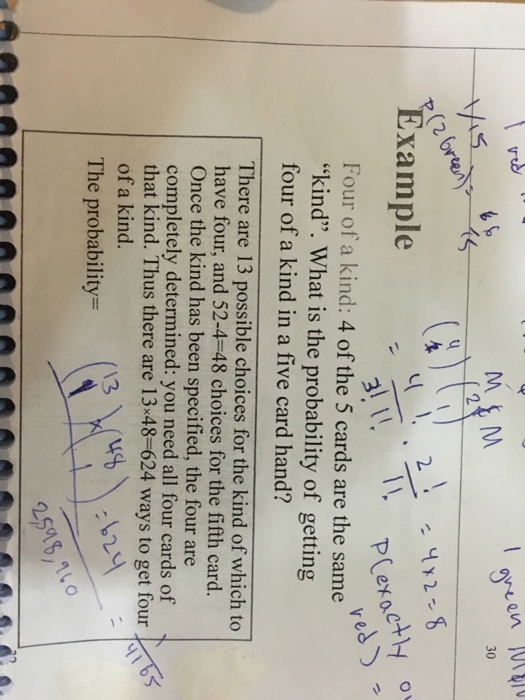 1 red
M & M
1 green
30
1/15
66
15
P(2 Green) =
(4 1) (2 1)
= 4!/3!1! · 2!/1! = 4x2=8
P(exactly
red) =
Example
Four of a kind: 4 of the 5 cards are the same
“kind”. What is the probability of getting
four of a kind in a five card hand?
There are 13 possible choices for the kind of which to
have four, and 52-4=48 choices for the fifth card.
Once the kind has been specified, the four are
completely determined: you need all four cards of
that kind. Thus there are 13×48=624 ways to get four
of a kind.
The probability=
(13 1) x (48 1) = 624
2,598,960
= 1/4165